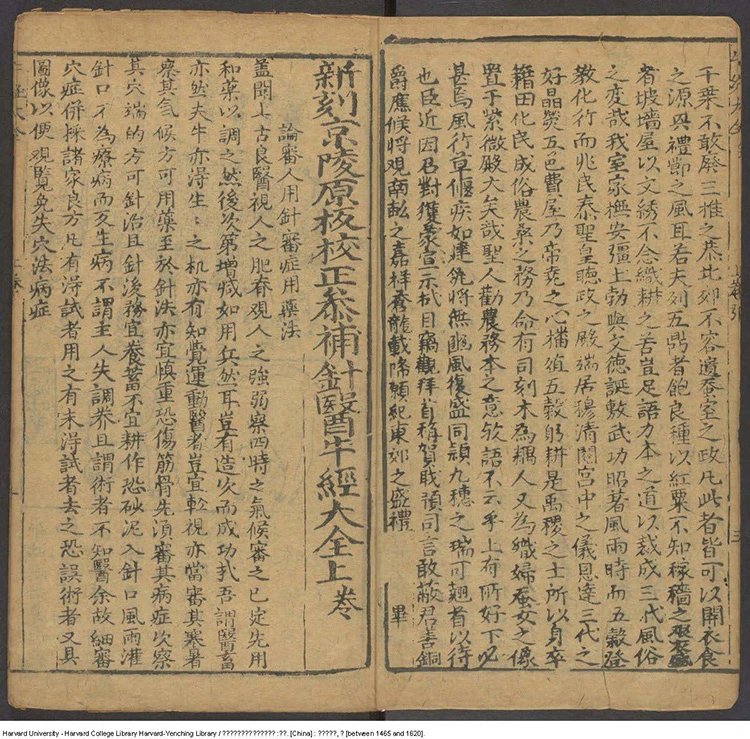 千葉不敢廢三推之恭北郊不容遺蚕室之政凡此者皆可以開衣食
之源興禮節之風耳若夫列五鼎者飽良種以紅粟不知稼穡之艱
者坡墻屋以文綉不念織耕之苦豈足語力本之道以裁成三代風俗
之変哉我室家撫安彊土勃興文德誕敷武功昭著風雨時而五穀登
教化行而兆民泰聖皇聽政之殿端居穆清閟宮中之儀思達三代之
好晶熒五邑費屋乃帝堯之心播殖五穀躬耕是禹稷之士所以身卒
籍田化民成俗農桑之務乃命有司刻木為耦人又為織婦蚕女之像
置于紫微殿大矣哉聖人勸農務本之意欤語不云乎上有所好下必
甚焉風行草偃疾如建瓴將無豳風復盛同頴九穗之瑞可翹首以待
也臣近因召對獲蒙宣示拭目竊觀拜首稱賀職預司言敢蔽君善銅
爵應候將觀兩䡖之嘉祥蒼龍載降願紀東郊之盛禮 畢
新刻京陵原板校正叅補針醫牛經大全上卷
論審人用針審症用藥法
蓋聞上古良醫視人之肥脊觀人之強弱察四時之氣候審之已定先用
和藥以調之然後次第增減如用兵然耳豈有造次而成功哉吾謂醫畜
亦然夫牛亦得生生之机亦有知覺運動醫者豈宜輕視亦當審其寒暑
察其氣候方可用藥至於針法亦宜慎重恐傷筋骨先須審其病症次察
其穴端的方可針治且針後務宜養蓄不宜耕作恐砂泥入針口風雨灌
針口不為療病而反生病不謂主人失調养且謂術者不知醫余故細審
穴症併採諸家良方凡有淂試者用之有未淂試者去之恐誤術者又具
圖像以便觀覧免失穴法病症
Harvard University - Harvard College Library Harvard-Yenching Library / ?????????????? :??. [China] : ?????, ? [between 1465 and 1620].